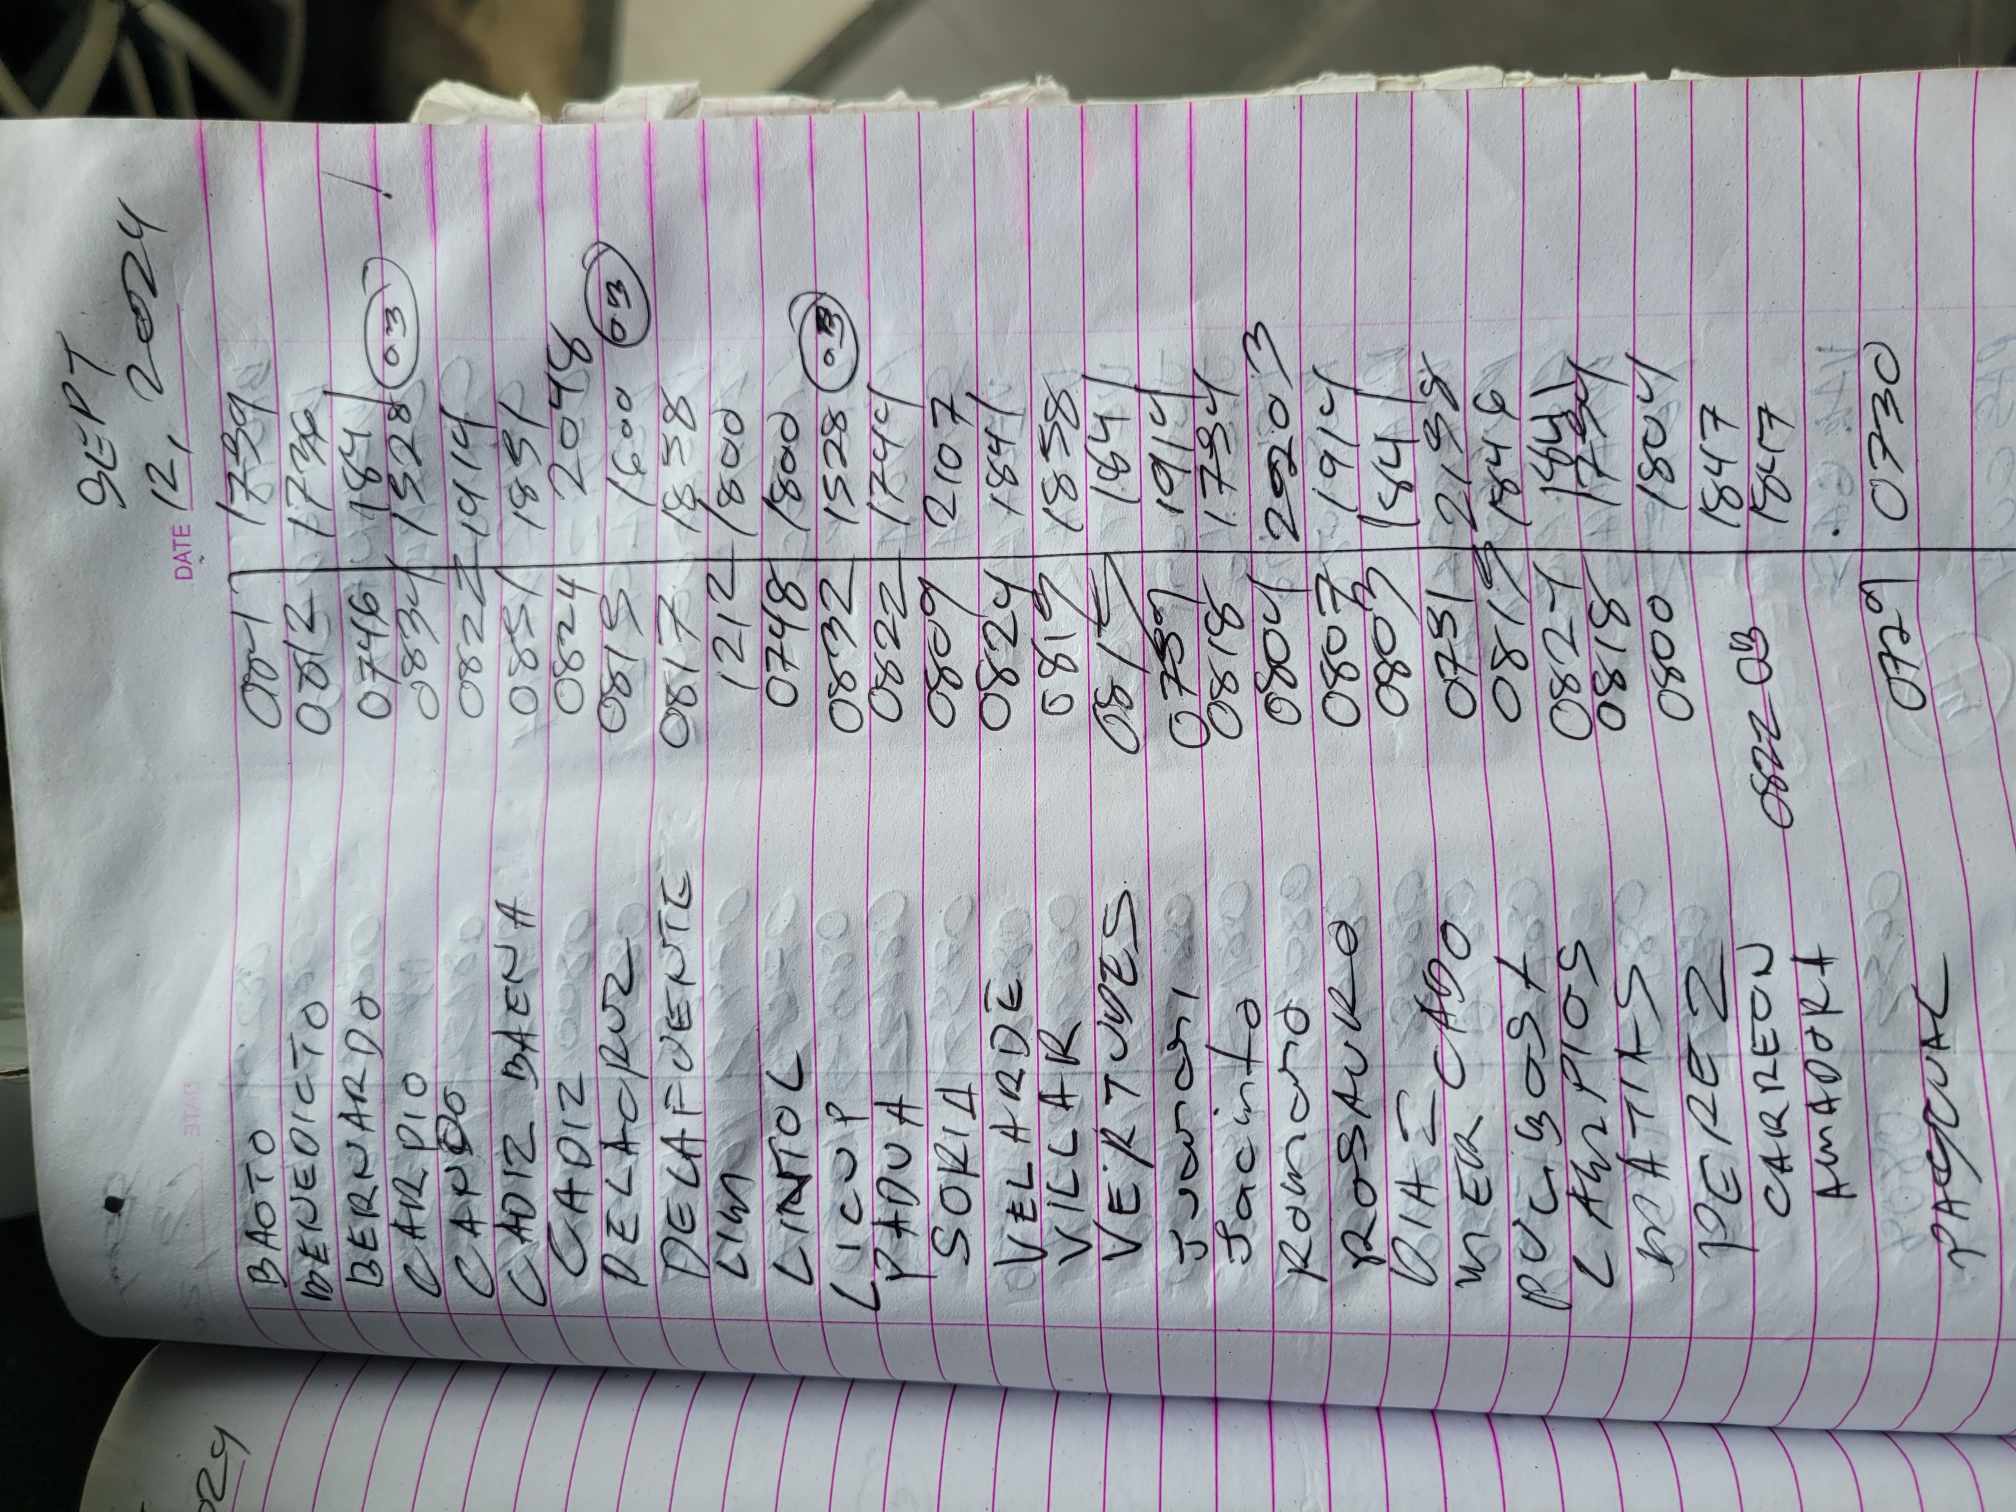 SEPT
DATE 12, 2024
BAOTO 1739
BENEDICTO 0812 1736
BERNARDO 0746 1841
CARPIO 0834 1528 03
CANDO 0822 1914
CADIZ BAENA 0851 1851
CADIZ 0824 2048
DELACRUZ 0815 1600 03
DELAFUENTE 0817 1858
LIM 1212 1800
LINTOL 0748 1800
LICUP 0832 1528 03
PADUA 0822 1744
SORIA 0809 2107
VELARDE 0824 1841
VILLAR 0819 1858
VERTUDES 0815 1841
Junari 0759 1914
Jacinto 0818 1734
Romano 0804
ROSAURO 0807 1914
DIAZ 0803 1841
MERCADO 0751 2158
0815 1846
LAMPIOS 0827 1841
MATIAS 0818 1734
PEREZ 0800 1804
CARREON 0822 1847
AMADORA 1847
PASCUAL 0729 0730